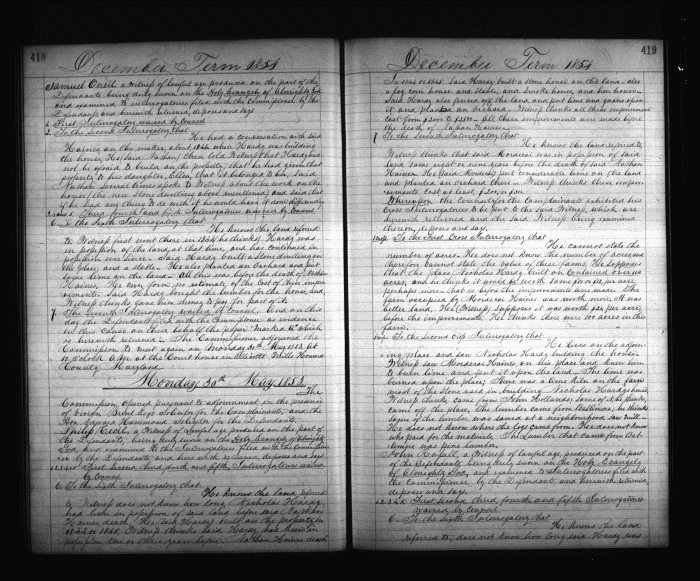 418
December Term 1854
Samuel Oneil, a Witness of lawful age produced on the part of the
Defendants being duly sworn on the Holy Evangely of Almighty God
and examined to interrogatories filed with the Commissioner by the
Defendants and herewith returned, deposes and says
1. First Interrogatory waived by Counsel
2. To the Second Interrogatory that
He had a conversation with said
Haines, on the matter, about 1844 when Hardy was building
the house, He (said Nathan) then told Witness that Hardy need
not be afraid to build on the property, that he had given that
property to his daughter, Ellen, that it belonged to him, Said
Nathan several times spoke to Witness about the work on the
house (the new stone dwelling above mentioned) and said that
if he had any thing to do with it he would have it done differently
Third fourth and fifth Interrogatories waived by Counsel
6. To the Sixth Interrogatory that
He knows the land referred
to Witness first went there in 1844 he thinks, Hardy was
in possession of the land, at that time, and has continued in
possession ever since. Said Hardy built a stone dwelling on
the place, and a stable. He also planted an Orchard and put
some lime on the land. All this was before the death of Nathan
Haines, He can form no estimate of the cost of these improve
ments. Said Hardy bought the lumber for the house, and
Witness thinks gave him money to pay for part of it.
7 The Seventh Interrogatory waived by Counsel, And on this
day the Defendants filed with the Commissioner as evidence
in this Cause on their behalf the paper marked A which
is herewith returned. The Commissioner adjourned the
Commission to meet again on Monday 30th May 1853 at
10 O'clock A.M. at the Court house in Ellicotts Mills Howard
County Maryland
Monday 30th May 1853
The
Commission opened pursuant to adjournment in the presence
of Solicitor for the Complainants, and the
Hon. Edward Hammond Solicitor for the Defendants
Philip Cecil, a Witness of lawful age produced on the part of
the Defendants, being duly sworn on the Holy Evangely of Almighty
God, and examined to the Interrogatories filed with the Commissioner
by the Defendants and herewith returned, deposes and says
1.2.3.4.5 First Second third fourth and fifth Interrogatories waived
by Counsel
6. To the Sixth Interrogatory that
He knows the land referred
to Witness does not know how long Nicholas Hardy
had been in possession of said land before said Nathan
Haines death. He, said Hardy built on the property in
1844 or 1845, Witness thinks said Hardy had been in
possession two or three years before. Nathan Haines, dead
419
December Term 1854
In 1844 or 1845. Said Hardy built a stone house on the land, also
a log corn house and stable, and smoke house, and hen house.
Said Hardy also fenced off the land and put lime and guano upon
it and planted an Orchard. Witness thinks all these improvements
cost from $2000 to $2500. All these improvements were made before
the death of Nathan Haines.
7 To the Seventh Interrogatory that
He knows the land referred to
Witness thinks that said Mordecai was in possession of said
land some eight or nine years before the death of said Nathan
Haines. He (said Mordecai) put considerable lime on the land
and planted an Orchard there. Witness thinks these improve
ments cost at least $500 or $600.
Whereupon the Counsel for the Complainants exhibited his
Cross Interrogatories to be put to the said Witness, which are
herewith returned and the said Witness being examined
thereon, deposes and says.
To the First Cross Interrogatory that
He cannot state the
number of acres. He does not know the number of acres and
therefore cannot state the value of these farms. He supposes
that the place Nicholas Hardy built on contained over 100
acres, and he thinks it would be worth some per acre,
perhaps more, that is before the improvements were made. The
farm occupied by Mordecai Haines was worth more, it was
better land, He (Witness) supposes it was worth $25 per acre
before the improvements. He thinks there were 100 acres in this
farm.
To the Second Cross Interrogatory that
He lives on the adjoin
ing place and saw Nicholas Hardy building the house.
Witness saw Mordecai Haines on his place and knew him
to burn lime and put it upon the land. The lime was
burned upon the place, There was a lime kiln on the farm
most of the stone used in building Nicholas Hardy's house
Witness thinks, came from John Hollands, some of it, he thinks,
came off the place, The lumber came from Baltimore, he thinks
some of the lumber was sawed at a neighbourhood saw Mill.
He does not know where the logs came from, He does not know
who paid for the materials. The Lumber that came from Bal
timore was pine lumber.
John Chpell, a Witness of lawful age, produced on the part
of the Defendants, being duly sworn on the Holy Evangely
of Almighty God, and examined to Interrogatories filed with
the Commissioner by the Defendants, and herewith returned,
deposes and says.
1.2.3.4.5 First, second, third, fourth and fifth Interrogatories
waived by Counsel
6. To the sixth Interrogatory that
He knows the land
referred to, does not know how long said Hardy was